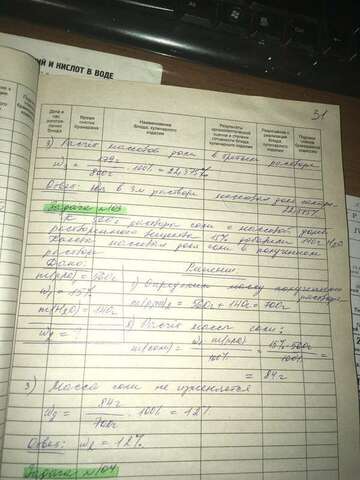 ИЙ И КИСЛОТ В ВОДЕ
31
Дата и час изготовления блюда
Время снятия бракеража
Наименование блюда, кулинарного изделия
Результаты органолептической оценки и степени готовности блюда кулинарного изделия
Разрешение к реализации блюда, кулинарного изделия
Подписи членов бракеражной комиссии
3) Расчет массовой доли в третьем растворе
w₃ = 179г / 800г · 100% = 22,375%
Ответ: в 3м растворе массовая доля
22,375%
Задача №103
К раствору соли с массовой долей
растворенного вещества 15% добавили 140г H₂O
массовая доля соли в полученном
растворе
Дано: Решение:
m(рра)₁ = 560г
1) определим массу полученного раствора
w₁ = 15%
m(рра)₂ = 560г + 140г = 700г
m(H₂O) = 140г
2) Расчет массы соли:
w₂ = ?
m(соли) = w₁ · m(рра) / 100% = 15% · 560г / 100% =
= 84г
3) Масса соли не изменяется
w₂ = 84г / 700г · 100% = 12%
Ответ: w₂ = 12%
Задача №104